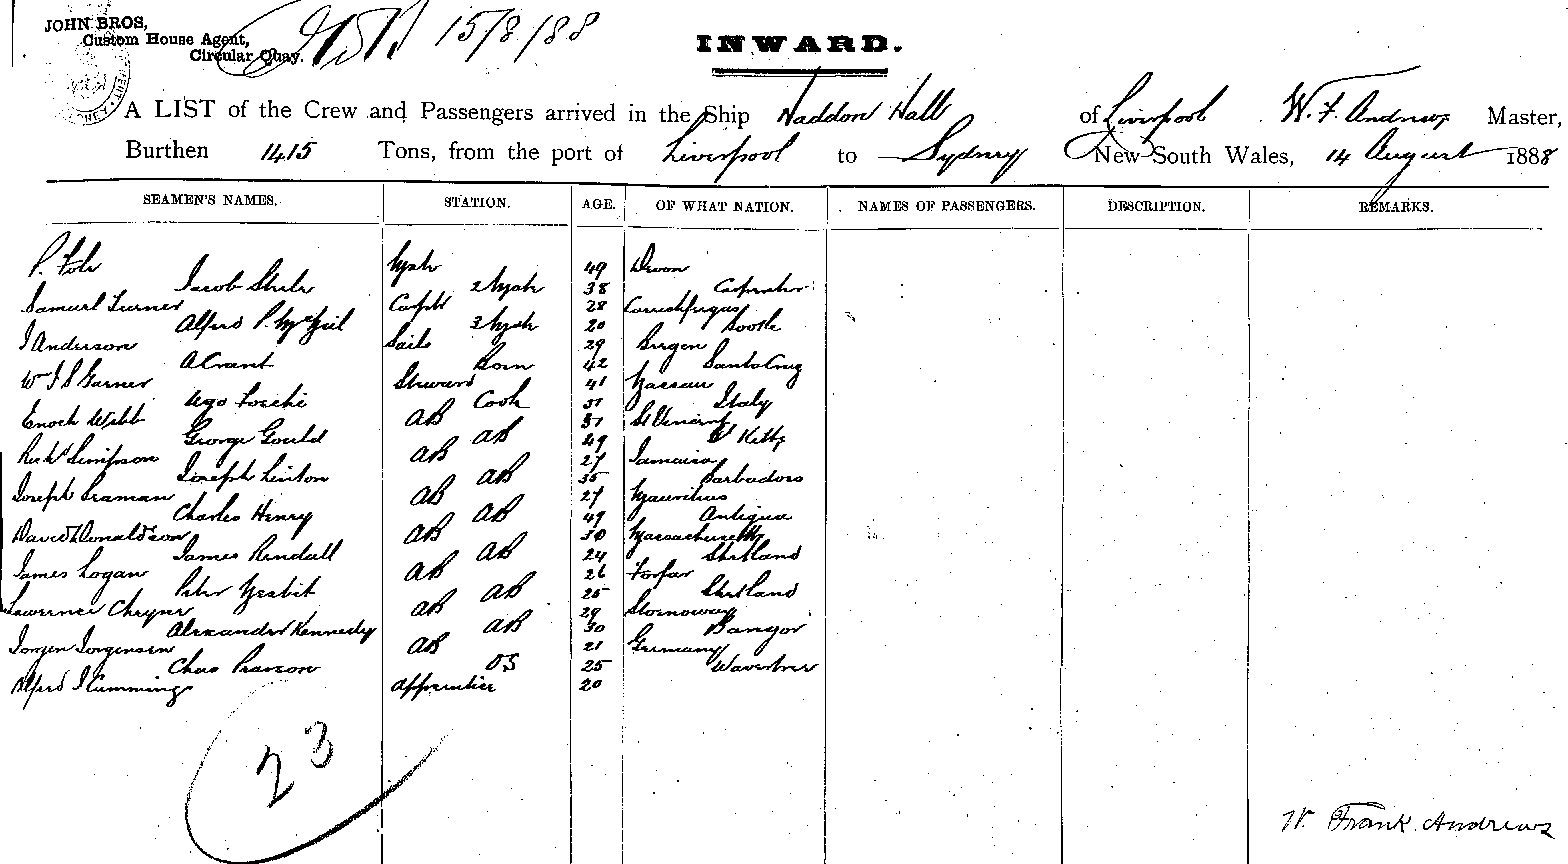 JOHN BROS,
Custom House Agent,
Circular Quay.
15/8/88
INWARD.
A LIST of the Crew and Passengers arrived in the Ship Haddon Hall of Liverpool W. F. Andrews Master,
Burthen 1415 Tons, from the port of Liverpool to Sydney New South Wales, 14 August 1888
SEAMEN'S NAMES. STATION. AGE. OF WHAT NATION. NAMES OF PASSENGERS. DESCRIPTION. REMARKS.
P. Mate 49 Devon
Jacob 2 Mate 38
Samuel Turner Carptr 28 Carrickfergus
Alfred P. 3 Mate 20 Bootle
J Anderson Sails 29 Bergen
A Grant Bosn 42 Santa Cruz
W J S Garner Steward 41 Nassau
Ugo Foschi Cook 31 Italy
Enoch Webb AB 31 St Vincent
George Gould AB 49 St Kitts
Richd Simpson AB 27 Jamaica
Joseph Linton AB 35 Barbadoes
Joseph Seaman AB 27 Mauritius
Charles Henry AB 49 Antigua
David Donaldson AB 30 Massachusetts
James Rendall AB 24 Shetland
James Logan AB 26 Forfar
Peter Nesbit AB 25 Shetland
Lawrence Cheyne AB 29 Stornoway
Alexander Kennedy AB 30 Bangor
Jorgen Jorgensen AB 21 Germany
Chas Pearson OS 25 Wavertree
Alfred J Cumming Apprentice 20
23
W. Frank Andrews